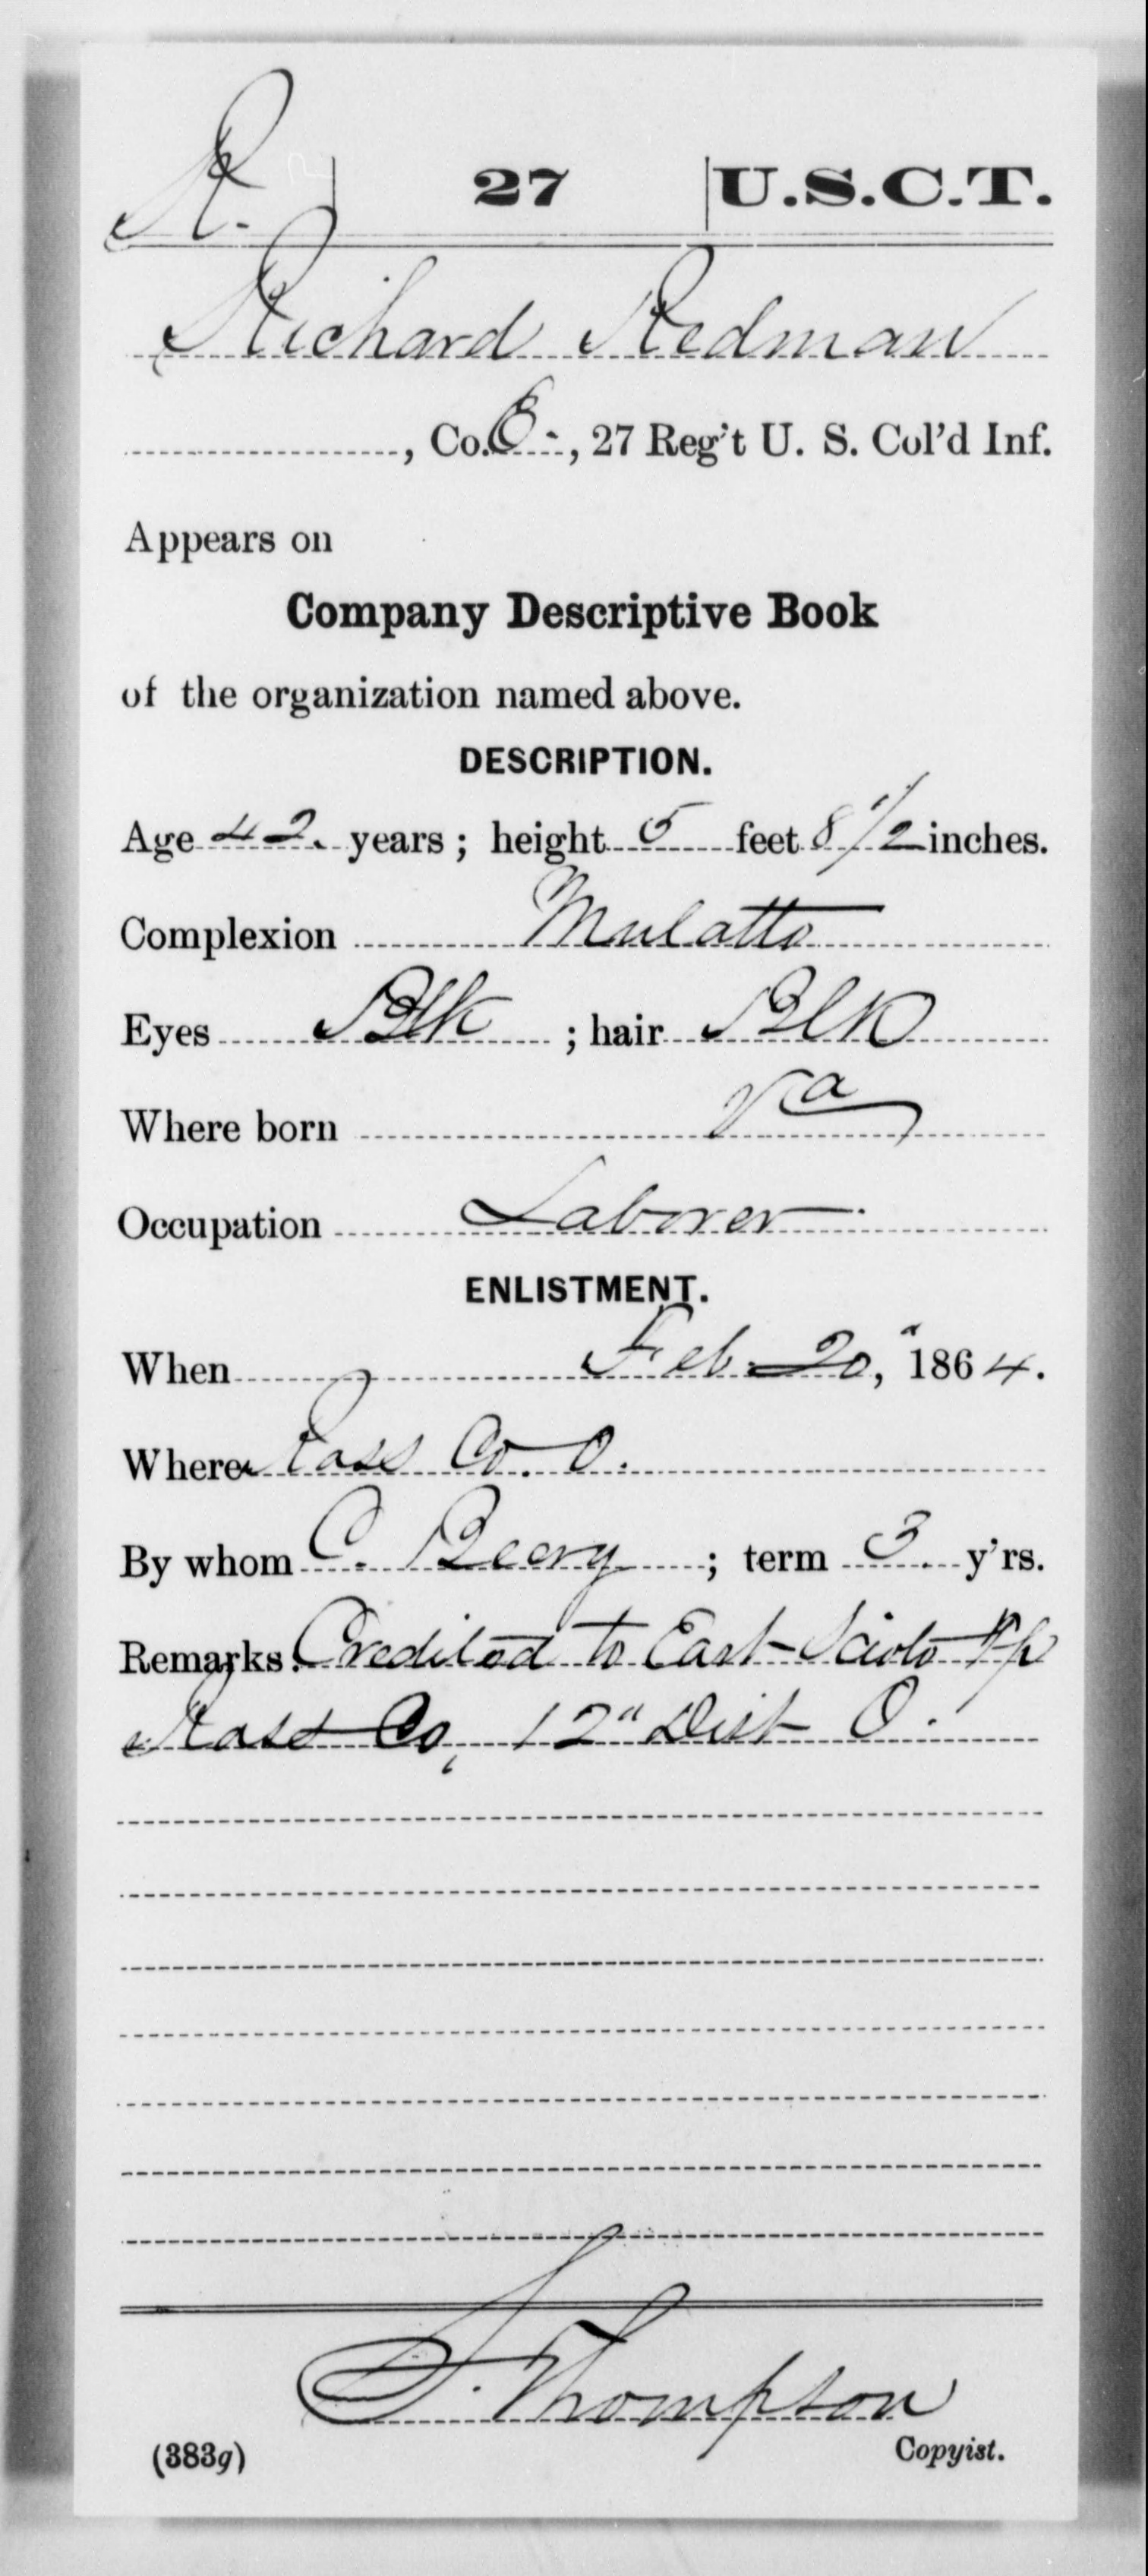 R. | 27 | U.S.C.T.
Richard Redman
, Co. , 27 Reg't U. S. Col'd Inf.
Appears on
Company Descriptive Book
of the organization named above.
DESCRIPTION.
Age 42 years; height 5 feet 8 1/2 inches.
Complexion Mulatto
Eyes Blk ; hair Blk
Where born Va
Occupation Laborer
ENLISTMENT.
When Feb. 20, 1864.
Where Ross Co. O.
By whom C. Beery ; term 3 y'rs.
Remarks: Credited to East Scioto Tp
Ross Co, 12" Dist O.
Thompson
(383g) Copyist.